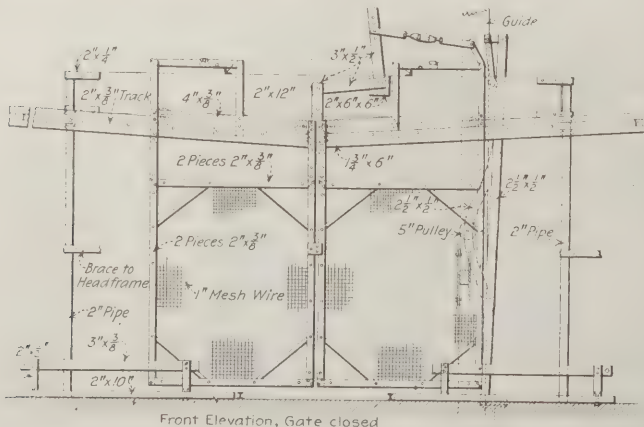 Guide
2"x¼"
3"x½"
2"x⅜" Track
4"x⅜"
2"x12"
2"x6"x6"
2 Pieces 2"x⅜"
1¾"x6"
2½"x½"
2½"x½"
5" Pulley
2" Pipe
2 Pieces 2"x⅜"
Brace to
Headframe
1" Mesh Wire
2" Pipe
3"x⅜"
2"x10"
Front Elevation, Gate closed